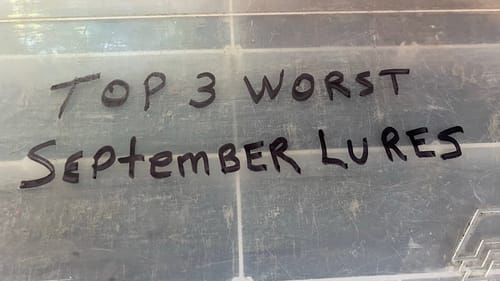 TOP 3 WORST
SEPtemBER LURES